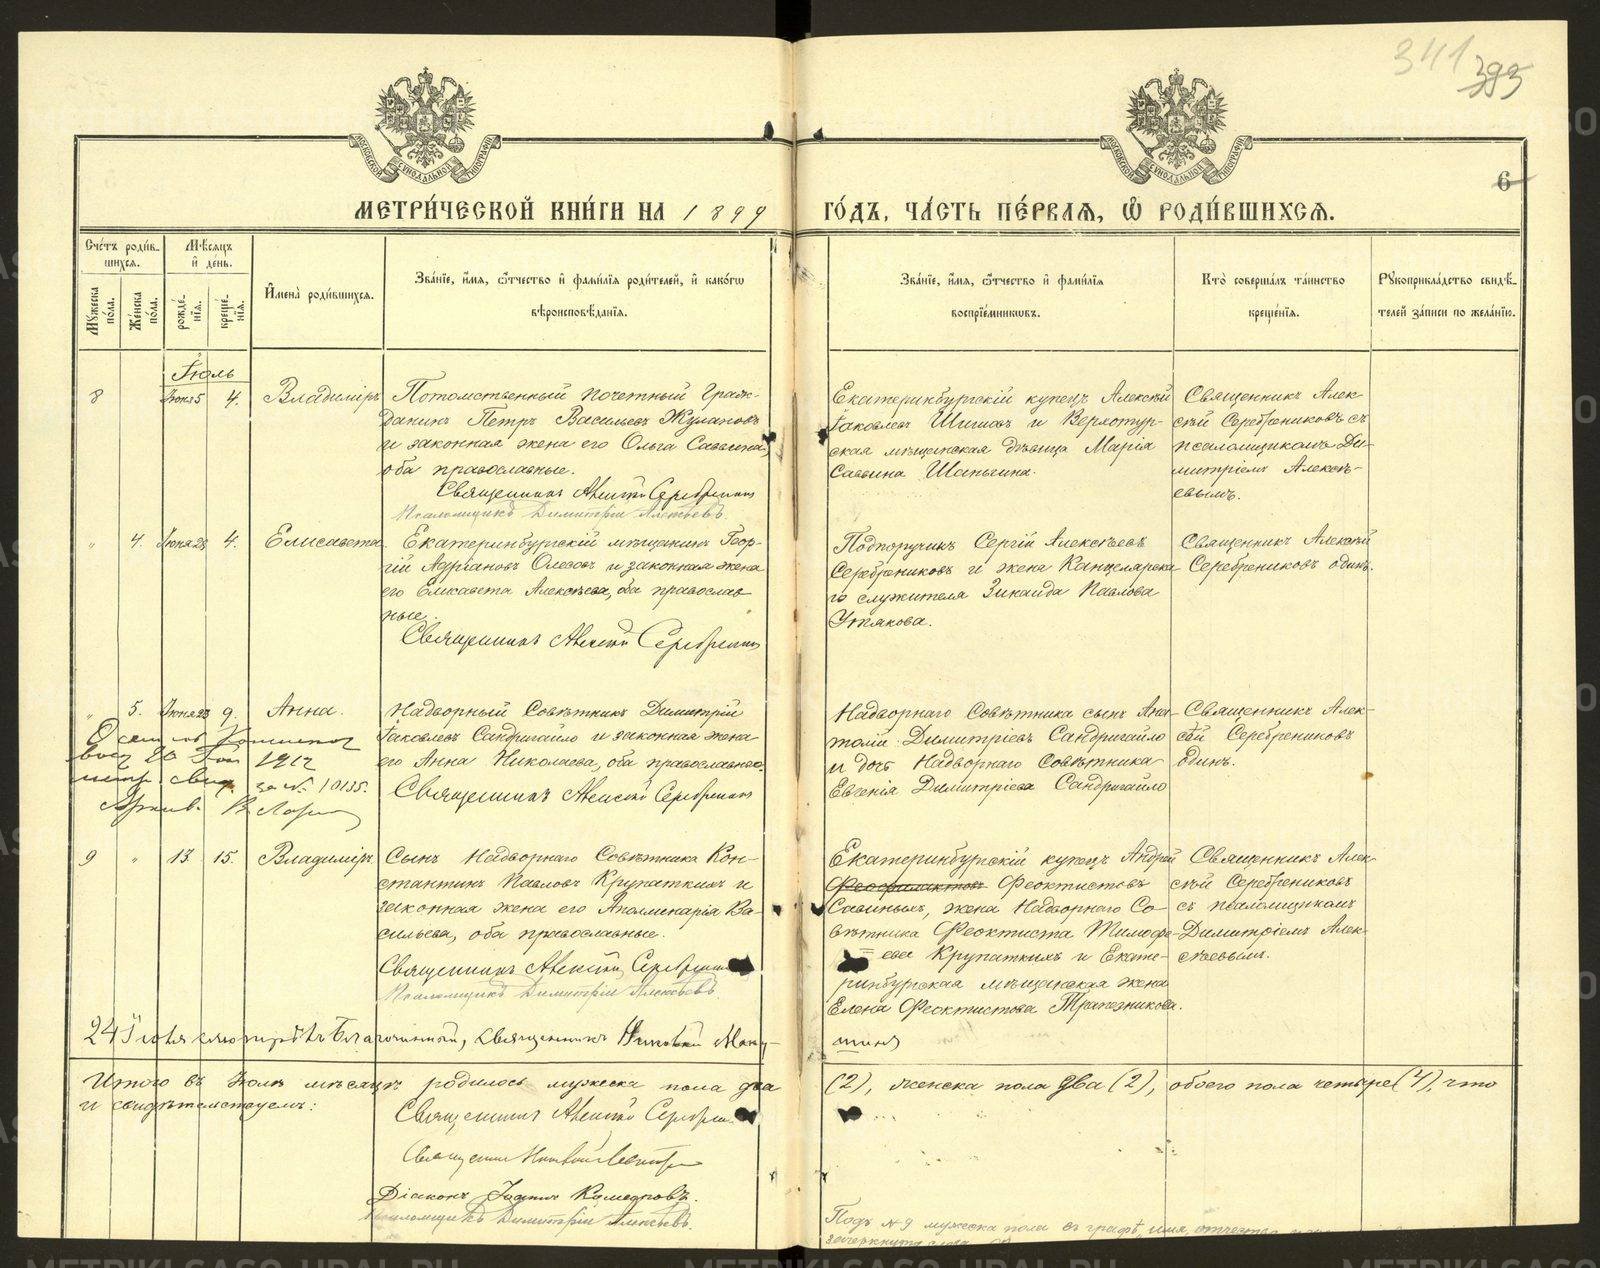 341
393
МОСКОВСКОЙ СѴНОДАЛЬНОЙ ТИПОГРАФІИ
МОСКОВСКОЙ СѴНОДАЛЬНОЙ ТИПОГРАФІИ
6
МЕТРИ́ЧЕСКОЙ КНИ́ГИ НА 1899
ГО́ДЪ, ЧА́СТЬ ПЕ́РВАѦ, Ѿ РОДИ́ВШИХСѦ.
Сче́тъ роди́в-
шихсѧ.
Мꙋ́жеска по́ла.
Же́нска по́ла.
Мѣ́сѧцъ и҆ де́нь.
рожде́-
нїѧ.
креще́-
нїѧ.
И҆мена̀ роди́вшихсѧ.
Зва́нїе, и҆́мѧ, ѻ҆́тчество и҆ фами́лїѧ роди́телей, и҆ како́гѡ
вѣроисповѣ́данїѧ.
Зва́нїе, и҆́мѧ, ѻ҆́тчество и҆ фами́лїѧ
воспрїе́мникѡвъ.
Кто̀ соверша́лъ та́инство
креще́нїѧ.
Рꙋкоприкла́дство свидѣ́-
телей за́писи по жела́нїю.
Іюль
8 Іюня 5 4. Владиміръ
Потомственный почетный граж-
данинъ Петръ Васильевъ Жулановъ
и законная жена его Ольга Саввина,
оба православные.
Священникъ Алексій Серебрениковъ
Псаломщикъ Димитрій Алексѣевъ.
Екатеринбургскій купецъ Алексѣй
Іаковлевъ Шишовъ и Верхотур-
ская мѣщанская дѣвица Марія
Саввина Шапьгина.
Священникъ Алек-
сѣй Серебрениковъ съ
псаломщикомъ Ди-
митріемъ Алексѣ-
евымъ.
" 4. Іюня 23 4. Елисавета.
Екатеринбургскій мѣщанинъ Геор-
гій Адріановъ Олесовъ и законная жена
его Елисавета Алексѣева, оба православ
ные.
Священникъ Алексѣй Серебрениковъ
Подпоручикъ Сергій Алексѣевъ
Серебрениковъ и жена Канцелярска-
го служителя Зинаида Павлова
Утякова.
Священникъ Алексѣй
Серебрениковъ одинъ.
" 5. Іюня 23 9. Анна.
Надворный Совѣтникъ Димитрій
Іаковлевъ Сандригайло и законная жена
его Анна Николаева, оба православные.
Священникъ Алексѣй Серебрениковъ
1912
за № 10135.
Надворнаго Совѣтника сынъ Ана-
толій Димитріевъ Сандригайло
и дочь Надворнаго Совѣтника
Евгенія Димитріева Сандригайло
Священникъ Алек-
сѣй Серебрениковъ
одинъ.
9 " 13 15. Владиміръ.
Сынъ Надворнаго Совѣтника Кон-
стантинъ Павловъ Крупаткинъ и
законная жена его Аполлинарія Ва-
сильева, оба православные.
Священникъ Алексѣй Серебрениковъ
Псаломщикъ Димитрій Алексѣевъ.
Екатеринбургскій купецъ Андрей
Феофилактовъ Феоктистовъ
Савиныхъ, жена Надворнаго Со-
вѣтника Феоктиста Тимофе-
ева Крупаткинъ и Екате-
ринбургская мѣщанская жена
Елена Феоктистова Трапезникова.
Священникъ Алек-
сѣй Серебрениковъ
съ псаломщикомъ
Димитріемъ Алек-
сѣевымъ.
24 Іюля смотрѣлъ Благочинный, священникъ Николай
Итого въ Іюлѣ мѣсяцѣ родилось мужеска пола два (2), женска пола два (2), обоего пола четыре (4), что
и свидѣтельствуемъ:
Священникъ Алексѣй Серебрениковъ
Священникъ
Діаконъ Іоаннъ
Псаломщикъ Димитрій Алексѣевъ.
Подъ № 9 мужеска пола въ графѣ, имя, отчество
зачеркнуто слово